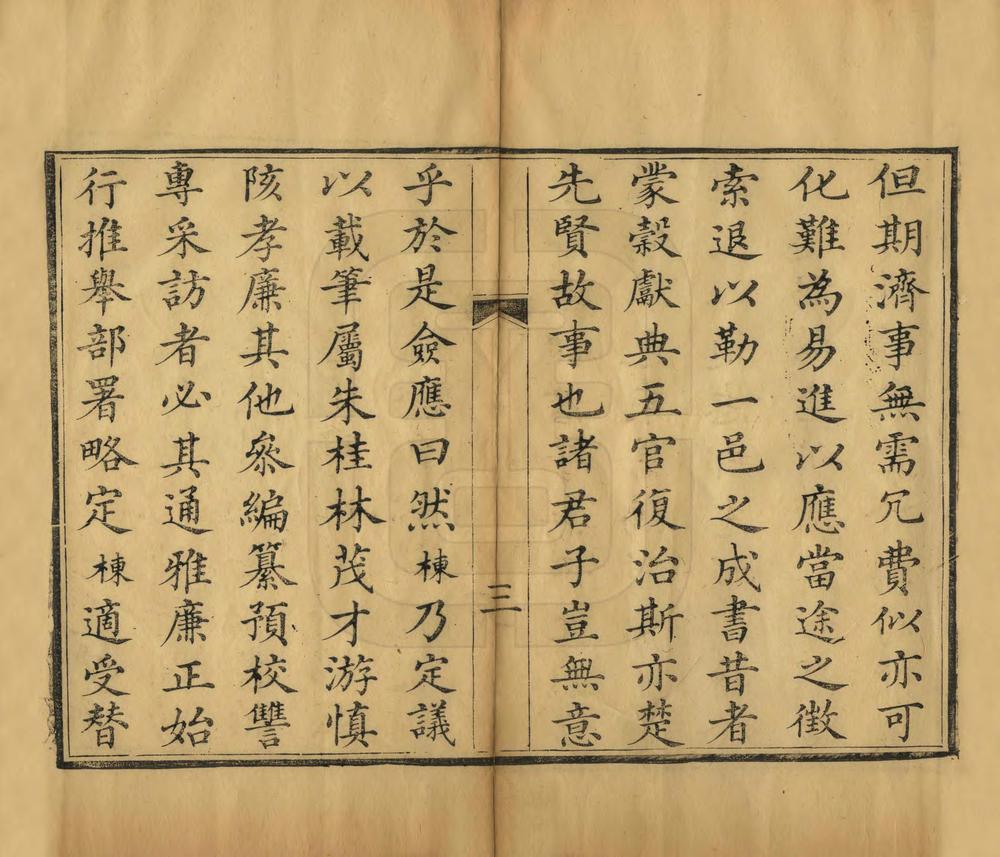 但期濟事無需冗費似亦可
化難為易進以應當途之徵
索退以勒一邑之成書昔者
蒙穀獻典五官復治斯亦楚
先賢故事也諸君子豈無意
三
乎於是僉應曰然棟乃定議
以載筆屬朱桂林茂才游慎
陔孝廉其他叅編纂預校讐
專采訪者必其通雅廉正始
行推舉部署略定棟適受替